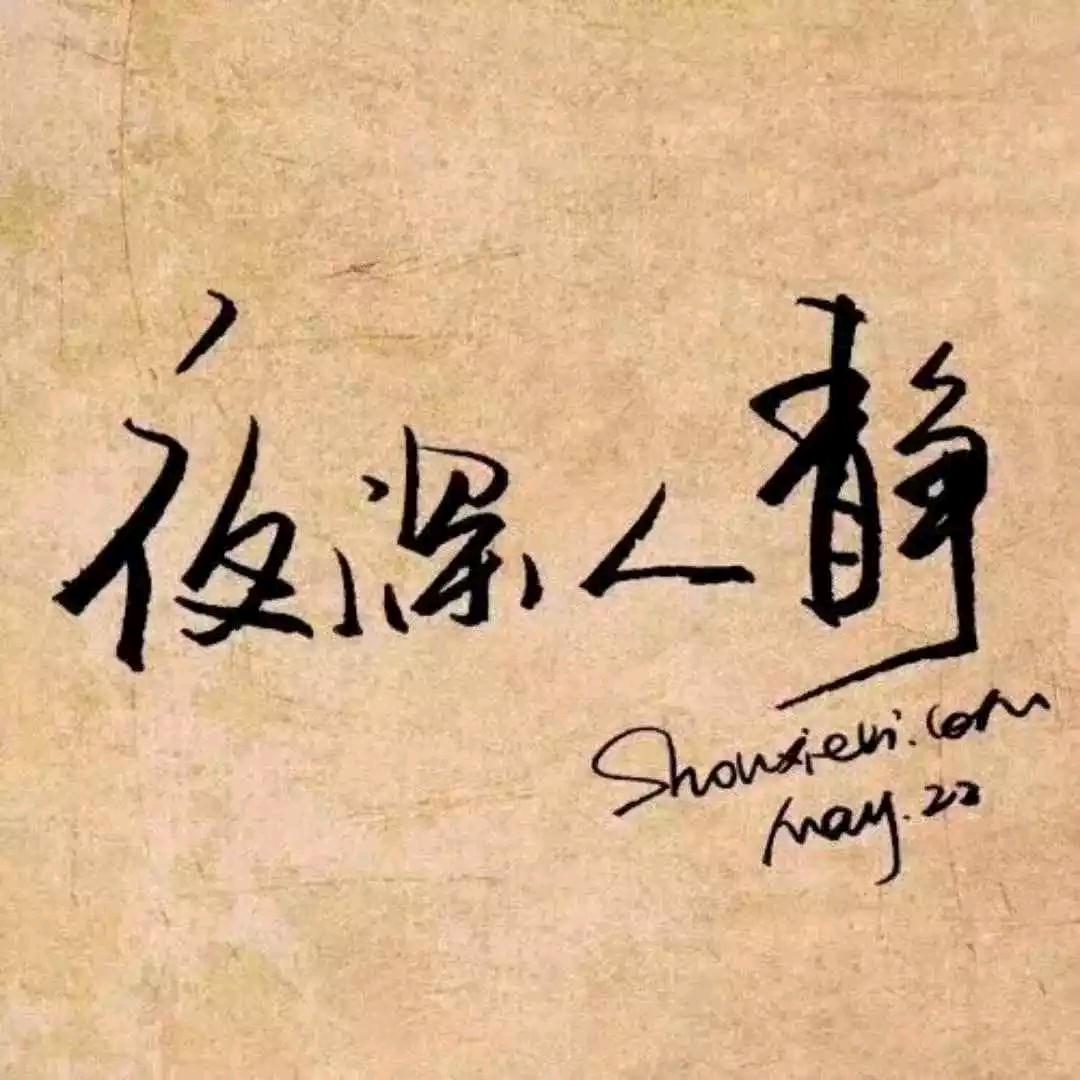 夜深人静
Shouxiexi.com
may.22